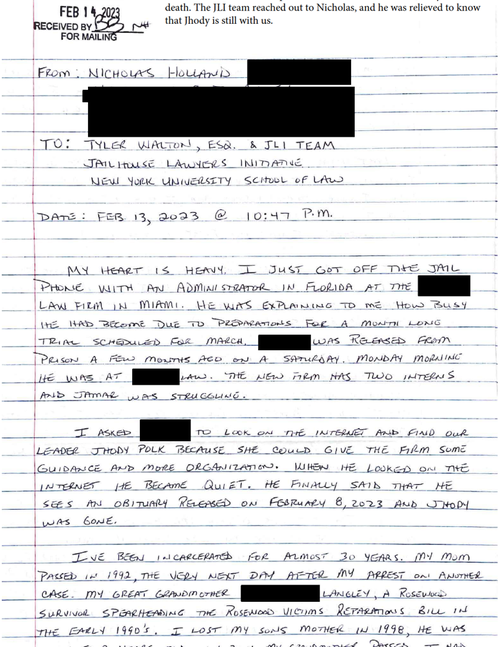 death. The JLI team reached out to Nicholas, and he was relieved to know
that Jhody is still with us.
FEB 14 2023
RECEIVED BY
FOR MAILING
FROM: NICHOLAS HOLLAND
TO: TYLER WALTON, ESQ. & JLI TEAM
JAILHOUSE LAWYERS INITIATIVE
NEW YORK UNIVERSITY SCHOOL OF LAW
DATE: FEB 13, 2023 @ 10:47 P.M.
MY HEART IS HEAVY. I JUST GOT OFF THE JAIL
PHONE WITH AN ADMINISTRATOR IN FLORIDA AT THE
LAW FIRM IN MIAMI. HE WAS EXPLAINING TO ME HOW BUSY
HE HAD BECOME DUE TO PREPARATIONS FOR A MONTH LONG
TRIAL SCHEDULED FOR MARCH. WAS RELEASED FROM
PRISON A FEW MONTHS AGO ON A SATURDAY. MONDAY MORNING
HE WAS AT LAW. THE NEW FIRM HAS TWO INTERNS
AND JAMAR WAS STRUGGLING.
I ASKED TO LOOK ON THE INTERNET AND FIND OUR
LEADER JHODY POLK BECAUSE SHE COULD GIVE THE FIRM SOME
GUIDANCE AND MORE ORGANIZATION. WHEN HE LOOKED ON THE
INTERNET HE BECAME QUIET. HE FINALLY SAID THAT HE
SEES AN OBITUARY RELEASED ON FEBRUARY 8, 2023 AND JHODY
WAS GONE.
I'VE BEEN INCARCERATED FOR ALMOST 30 YEARS. MY MOM
PASSED IN 1992, THE VERY NEXT DAY AFTER MY ARREST ON ANOTHER
CASE. MY GREAT GRANDMOTHER LANGLEY, A ROSEWOOD
SURVIVOR SPEARHEADING THE ROSEWOOD VICTIMS REPARATIONS BILL IN
THE EARLY 1990'S. I LOST MY SONS MOTHER IN 1998, HE WAS